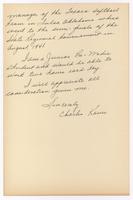 manager of the Texaco softball
team in Tulsa Oklahoma which
went to the semi-finals of the
State Regional tournament in
August 1941
I am a Junior Pre. Medic
Student and would be able to
work two hours each day
I will appreciate all
consideration given me.
Sincerely
Charles